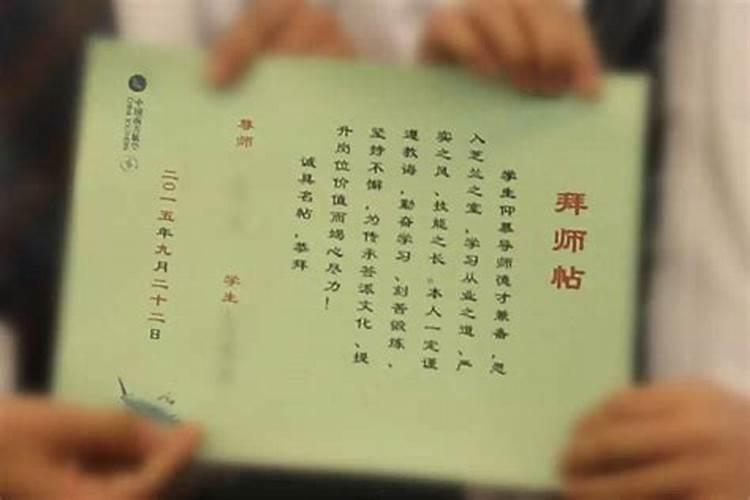 拜师帖
学生仰慕导师德才兼备,愿
入芝兰之室,学习从业之道、严
实之风、技能之长。本人一定谨
遵教诲,勤奋学习、刻苦锻炼、
坚持不懈,为传承荟派文化、提
升岗位价值而竭心尽力!
诚具名帖,恭拜
导师
学生
二〇一五年九月二十二日
中国南方航空
CHINA SOUTHERN